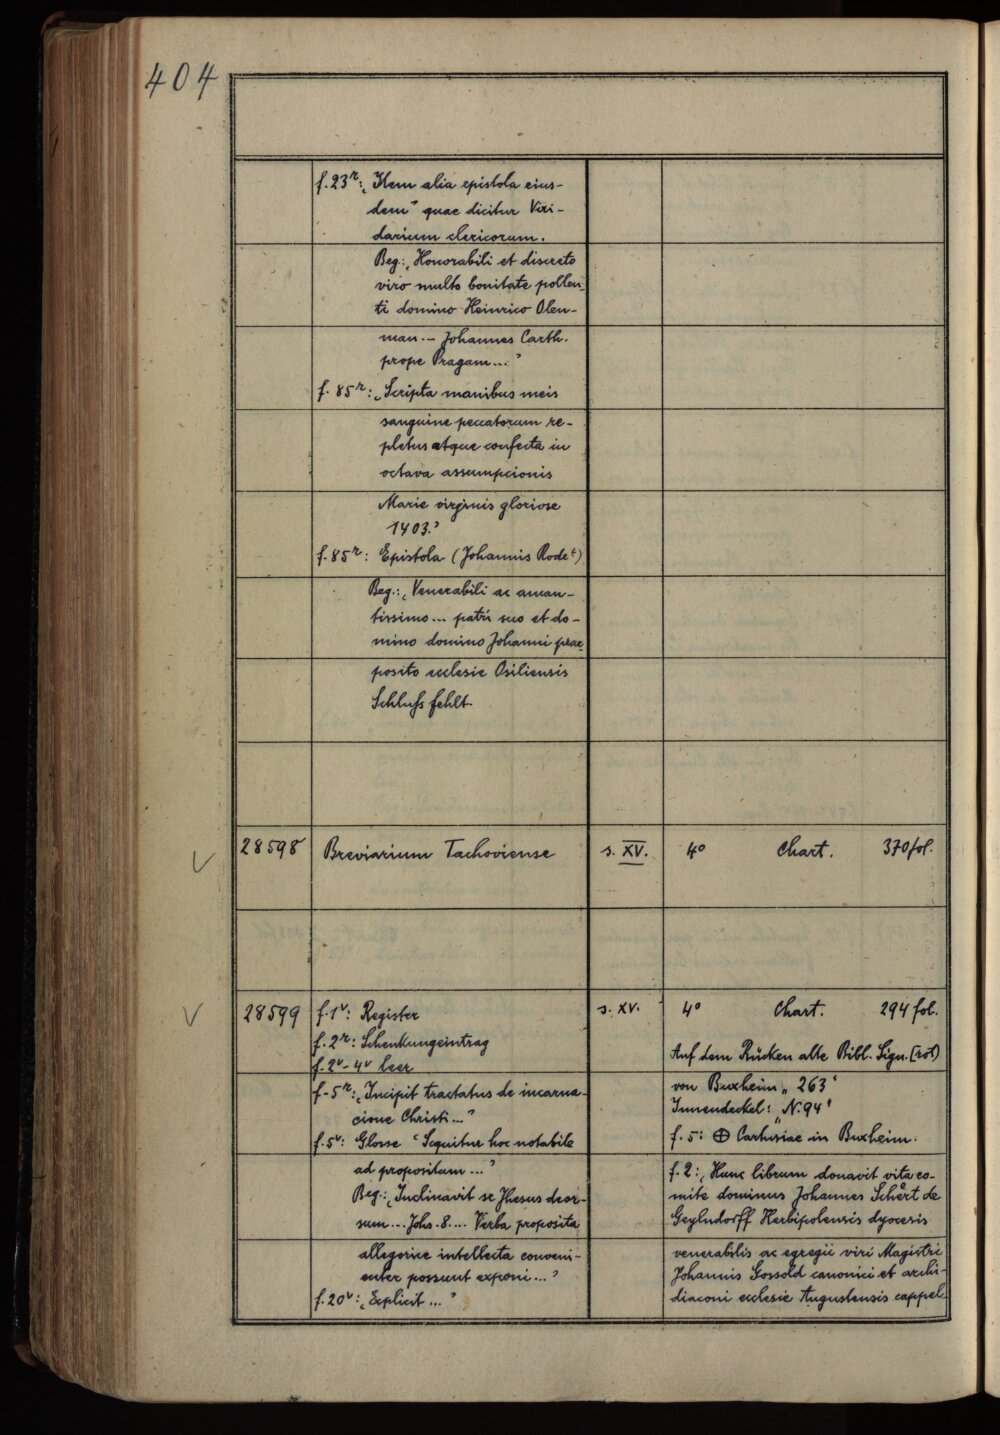 404
f. 23r: „Item alia epistola eius-
dem“ quae dicitur Viri-
darium clericorum.
Beg.: „Honorabili et discreto
viro multo bonitate pollen-
ti domino Heinrico Olen-
man. – Johannes Carth.
prope Pragam...“
f. 85r: „Scripta manibus meis
sanguine peccatorum re-
pletus atque confecta in
octava assumpcionis
Marie virginis gloriose
1403.“
f. 85r: Epistola (Johannis Rode)
Beg.: „Venerabili ac aman-
tissimo... patri suo et do-
mino domino Johanni prae-
posito ecclesie Osiliensis
Schluß fehlt.
√ 28598 Breviarium Tachoviense s. XV. 4° Chart. 370 fol.
√ 28599 f. 1v: Register s. XV. 4° Chart. 294 fol.
f. 2r: Schenkungeintrag
f. 2v-4v leer
f-5r: „Incipit tractatus de incarna-
cione Christi...“
f. 5v: Glosse „Sequitur hoc notabile
ad propositum...“
Beg.: „Inclinavit se Jhesus deor-
sum.... Johs. 8.... Verba proposita
allegorice intellecta conveni-
enter possunt exponi...“
f. 20v: „Explicit...“
Auf dem Rücken alte Bibl. Sign. (rot)
von Buxheim „263“
Innendeckel: „N. 94“
f. 5: ⊕ Cartusiae in Buxheim.
f. 2: „Hunc librum donavit vita co-
mite dominus Johannes Schert de
Geylndorff Herbipolensis dyocesis
venerabilis ac egregii viri Magistri
Johannis Gossold canonici et archi-
diaconi ecclesie Augustensis cappel-